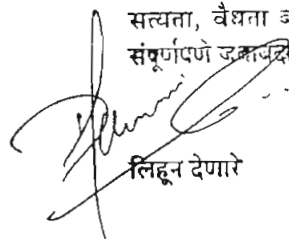 सत्यता, वैधता
संपूर्णपणे
लिहून देणारे